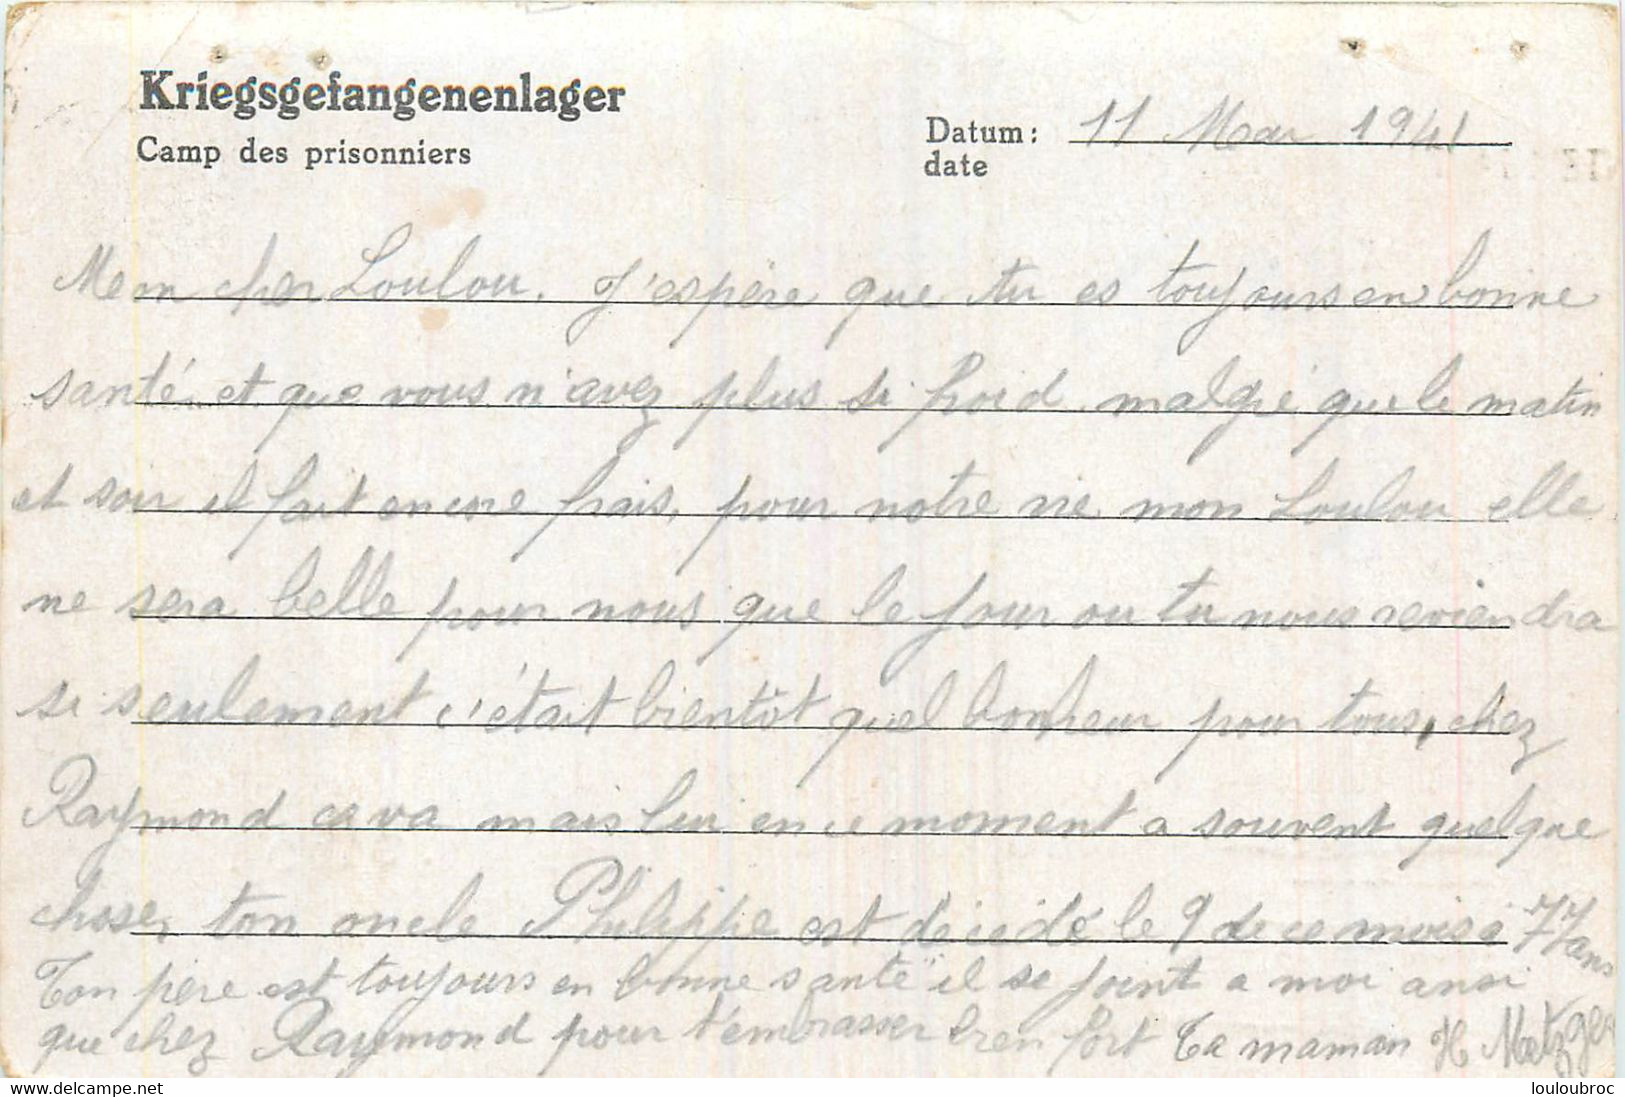 Kriegsgefangenenlager
Camp des prisonniers
Datum: 11 Mar 1941
date
Mon cher Loulou. J'espère que tu es toujours en bonne
santé et que vous n'avez plus si froid, malgré que le matin
et soir il fait encore frais, pour notre vie mon Loulou elle
ne sera belle pour nous que le jour ou tu nous reviendra
si seulement c'était bientôt quel bonheur pour tous, chez
Raymond ca va mais lui en ce moment a souvent quelque
chose, ton oncle Philippe est décédé le 9 de ce mois à 77 ans
Ton père est toujours en bonne santé il se joint a moi ansi
que chez Raymond pour t'embrasser bien fort Ta maman H Metzger
www.delcampe.net
louloubroc